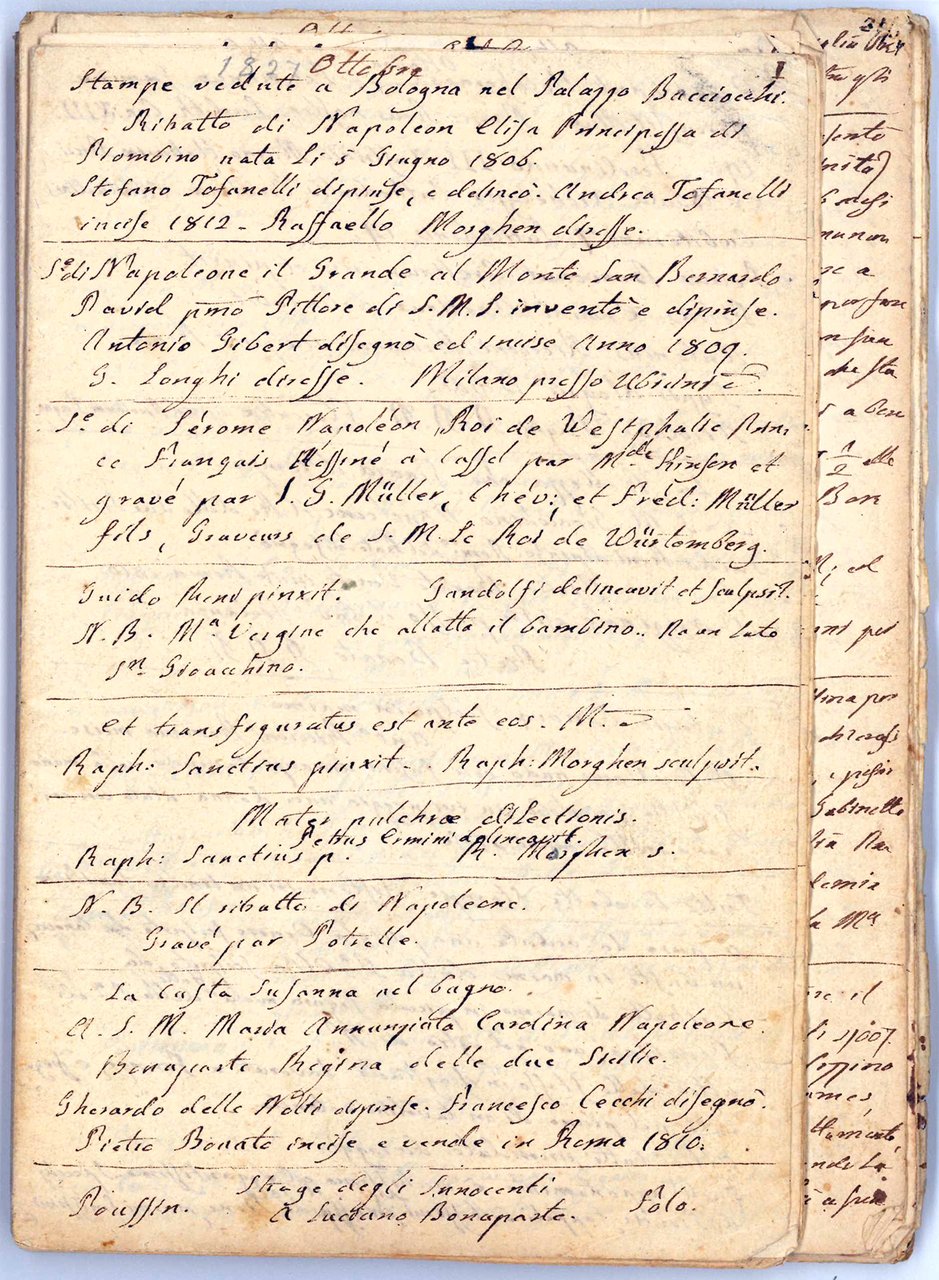 1827 Ottobre
1
Stampe vedute a Bologna nel Palazzo Bacciochi.
Ritratto di Napoleon Elisa Principessa di
Piombino nata li 5 Giugno 1806.
Stefano Tofanelli dipinse, e delineò. Andrea Tofanelli
incise 1812 - Raffaello Morghen diresse.
S.e di Napoleone il Grande al Monte San Bernardo.
David pmo Pittore di S. M. I. inventò e dipinse.
Antonio Gibert disegnò ed incise Anno 1809.
G. Longhi diresse. Milano presso Ubicini
S.e di Jérome Napoléon, Roi de Westphalie Prin-
ce Français dessiné à Cassel par Mde Kinson et
gravé par J. G. Müller, Chév: et Fréd: Müller
fils, Graveurs de S. M. Le Roi de Würtemberg.
Guido Reni pinxit. Gandolfi delineavit et sculpsit.
N. B. Ma Vergine che allatta il bambino. Da un lato
Sn Gioacchino.
Et transfiguratus est ante eos. M.
Raph: Sanctius pinxit. Raph: Morghen sculpsit.
Mater pulchræ dilectionis.
Petrus Ermini delineavit.
Raph: Sanctius p. R. Morghen s.
N. B. Il ritratto di Napoleone.
Gravé par Potrelle.
La Casta Susanna nel bagno.
A. S. M. Maria Annunziata Carolina Napoleone
Bonaparte Regina delle due Sicilie.
Gherardo delle Notti dipinse. Francesco Cecchi disegnò.
Pietro Bonato incise e vende in Roma 1810.
Strage degli Innocenti
Poussin. A Luciano Bonaparte. Folo.